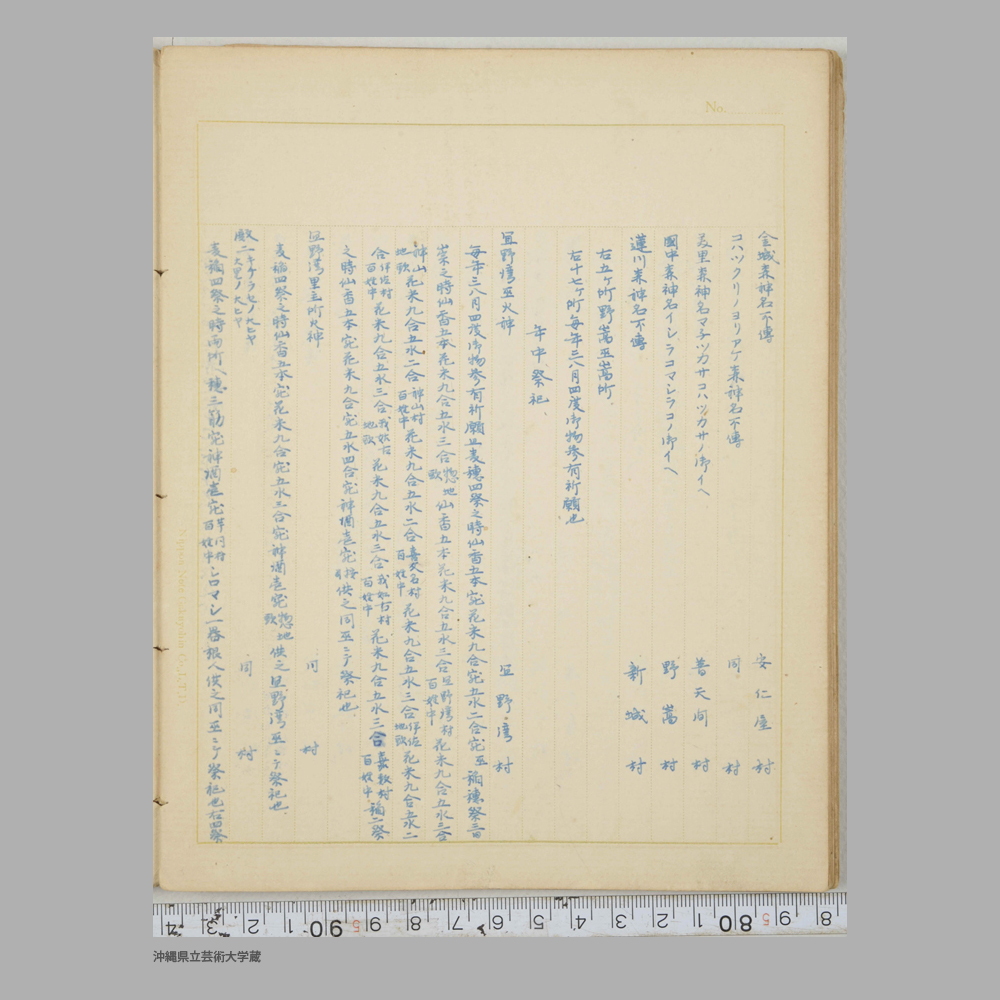 No.
金城森神名不傳　安仁屋村
コハツクリノヨリアケ森神名不傳　同村
美里森神名マチヅカサコハヅカサノ御イベ　普天間村
國中森神名イシラコマシラコノ御イベ　野嵩村
蓮川森神名不傳　新城村
右五ヶ所野嵩巫崇所
右十七ヶ所毎年三八月四度御物参有祈願也
年中祭祀
宜野湾巫火神　宜野湾村
毎年三八月四度御物参有祈願且麦穗四祭之時仙香五本宛花米九合宛五水二合宛巫稲穗祭三日
崇之時仙香五本花米九合五水三合惣地頭仙香五本花米九合五水三合宜野湾村百姓中花米九合五水三合
神山地頭花米九合五水二合神山村百姓中花米九合五水二合喜友名村百姓中花米九合五水三合伊佐地頭花米九合五水二
合伊佐村百姓中花米九合五水三合我如古地頭花米九合五水三合我如古村百姓中花米九合五水三合嘉数村百姓中稲二祭
之時仙香五本宛花米九合宛五水四合宛神酒壱宛供之同巫ニテ祭祀也
宜野湾里主所火神　同村
麦稲四祭之時仙香五本宛花米九合宛五水三合宛神酒壱宛惣地頭供之宜野湾巫ニテ祭祀也
殿二　大里ノ大ヒヤ　同村
麦稲四祭之時両所ヘ穗三筋宛神酒壱宛同村百姓中シロマシ一器根人供之同巫ニテ祭祀也右四祭
8 9 80 1 2 3 4 5 6 7 8 9 90 1 2 3 4
沖縄県立芸術大学蔵